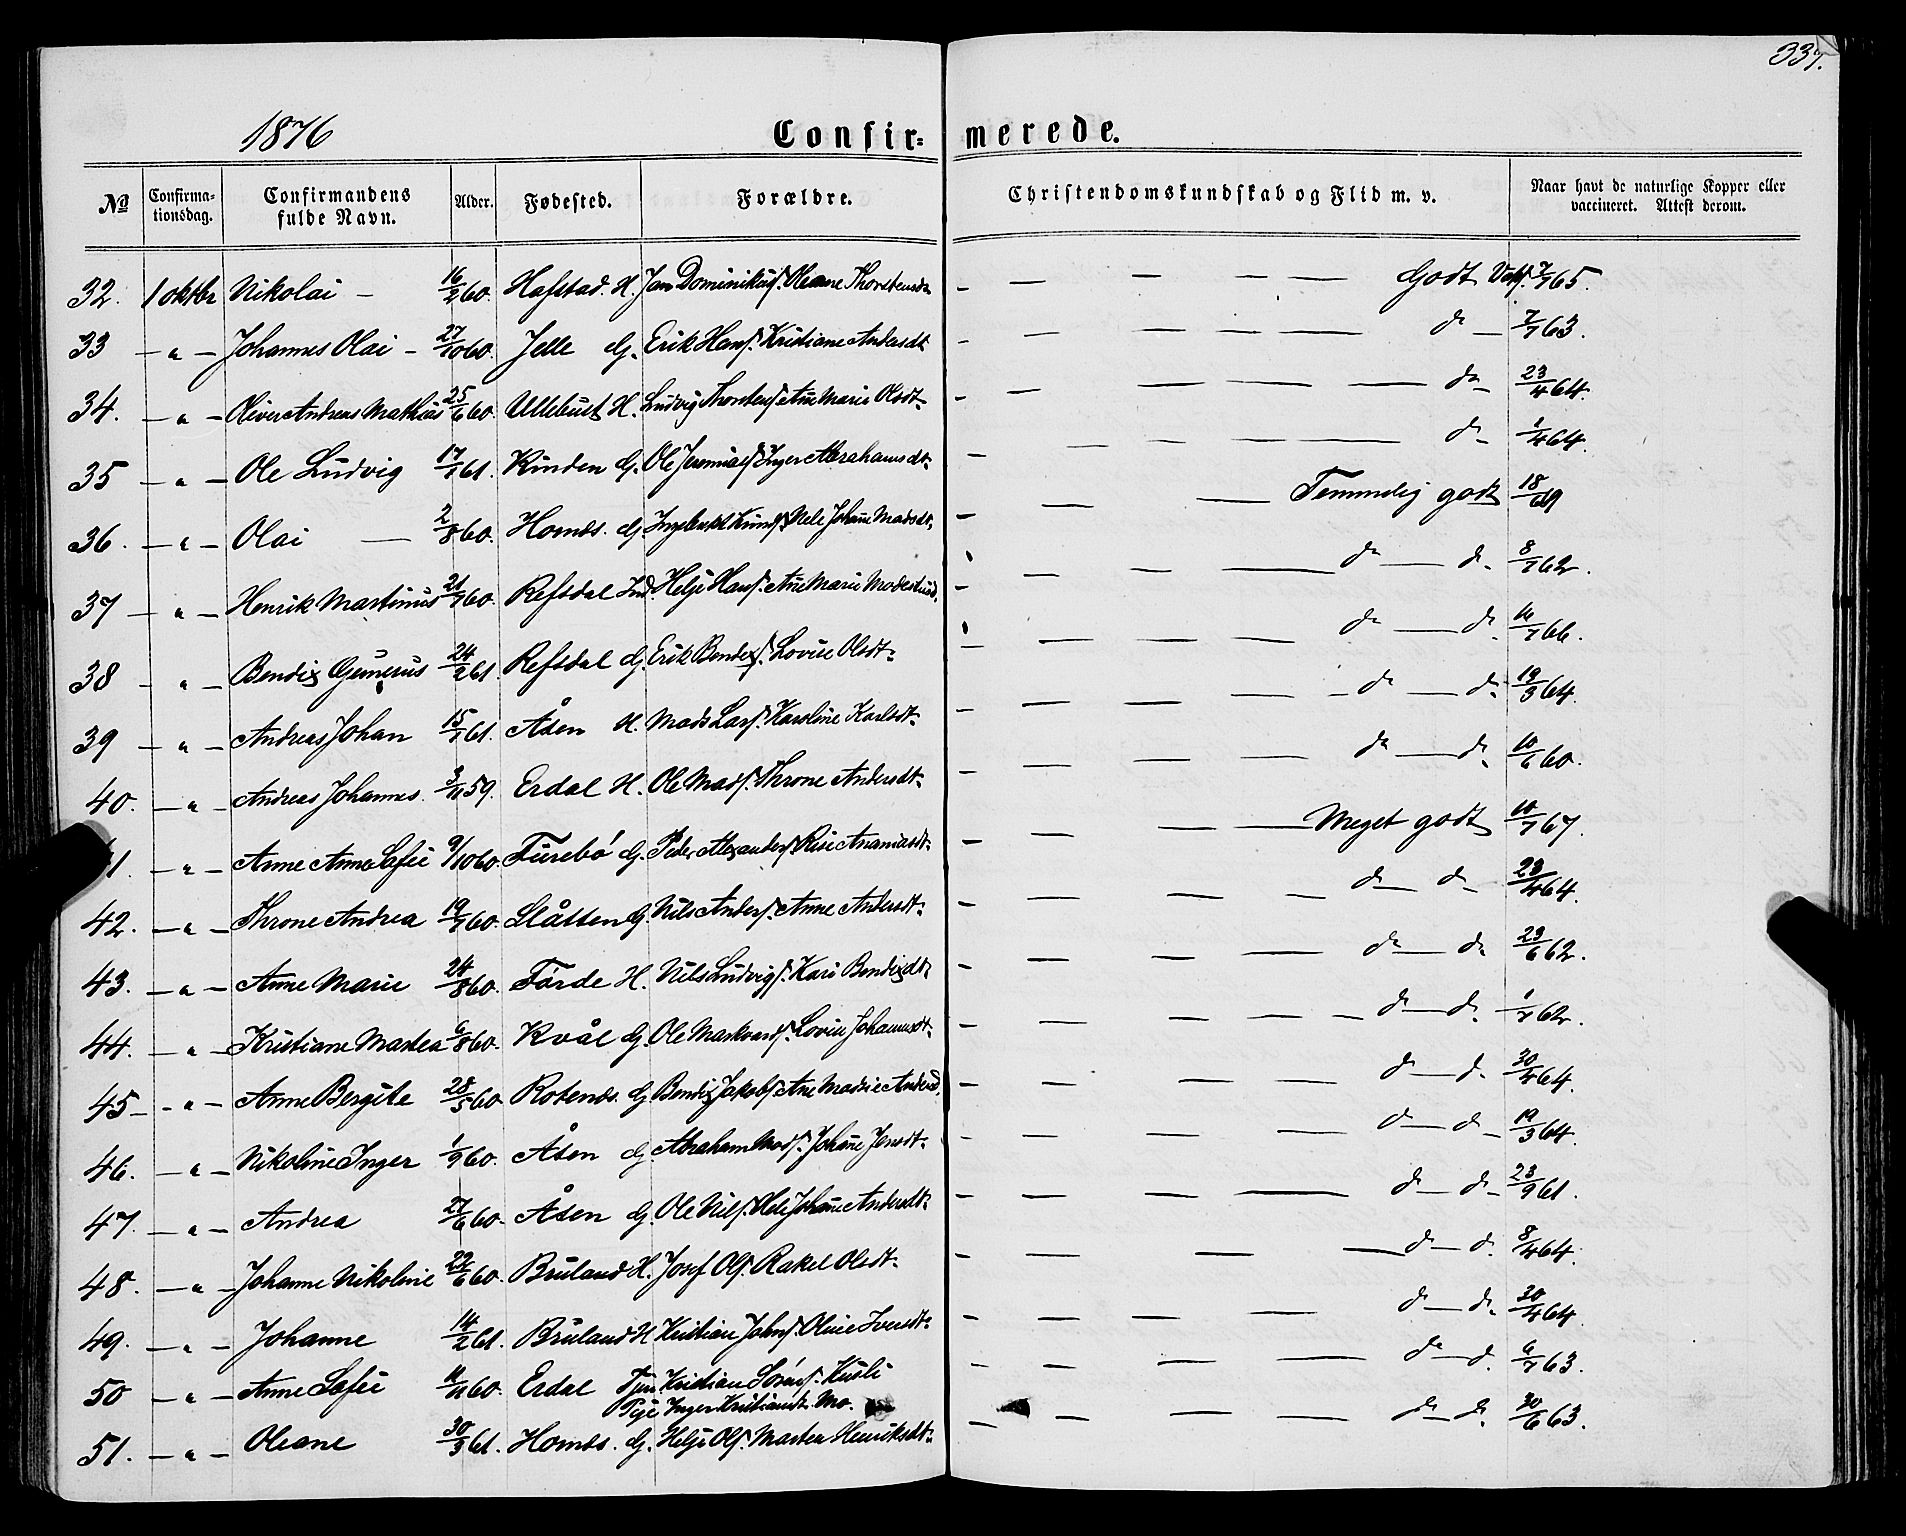 337.
1876 Confir- merede.
No Confirma-tionsdag. Confirmandens fulde Navn. Alder. Fødested. Forældre. Christendomskundskab og Flid m. v. Naar havt de naturlige Kopper eller vaccineret. Attest derom.
32. 1 oktbr Nikolai – 16/2 60. Hafstad. H. Jan Dominikuss. Oleane Thorstensdr — — — — — Godt Vaks. 7/7 65.
33 – " – Johannes Olai – 27/10 60. Jelle G. Erik Hanss. Kristiane Andersdt — — — — — do – 7/7 63.
34. – " – Oliver Andreas Mathias 25/6 60. Ullebust H. Ludvig Thorstens. Ane Marie Olsdt. — — — — — do – 23/4 64.
35 – " – Ole Ludvig 17/1 61. Kinden G. Ole Jeremias. Inger Abrahamsdt. — — — — — do – 1/4 64.
36. – " – Olai — 2/8 60. Hornds. G. Ingebrikt Knuds. Nele Johane Madsdt. — — — Temmelig godt 18/ 69
37 – " – Henrik Martinus 21/7 60. Refsdal Ind. Helje Hans. Ane Marie Modestusd. — — — — do — do. 8/7 62.
38 – " – Bendix Gunerus 24/2 61 Refsdal G. Erik Bendixs. Lovise Olsdt. — — — — — do — do. 16/7 66.
39 – " – Andreas Johan 15/1 61. Åsen H. Mads Lars. Karoline Karlsdt. — — — — – do — do. 19/3 64.
40. – " – Andreas Johannes. 3/11 59. Erdal H. Ole Mads. Throne Andersdt. — — — — do — do. 10/6 60.
1 – " – Anne Anne Sofie 9/10 60. Furebø G. Peder Alexanders. Rise Ananiasdt. — — — — Meget godt 10/7 67.
42. – " – Throne Andrea 19/7 60. Slåtten G. Nils Anders. Anne Andersdt. — — — — do — do – 23/4 64.
43. – " – Anne Marie 24/8 60. Førde H. Nils Ludvigs. Kari Bendixdt. — — — — do — do. 23/6 62.
44. – " – Kristiane Martea 6/8 60. Kvål G. Ole Markvards. Lovise Johannesdt. — — — — — do — do. 1/7 62.
45 – – " – Anne Bergite 28/5 60 Rotends. G. Bendix Jakobs. Ane Madsie Andersd. — — — — do — do. 30/4 64.
46. – " – Nikoline Inger 1/9 60. Åsen G. Abraham Mads. Johane Jensdt. — — — — do — do – 19/3 64.
47. – " – Andrea 27/6 60. Åsen G. Ole Nils. Nele Johane Andersdt. — — — — do — do – 23/9 61.
48. – " – Johanne Nikoline 22/6 60. Bruland H. Josef Ols. Rakel Olsdt. — — — — do — do. 8/4 64.
49. – " – Johanne 14/2 61. Bruland H Kristian Johns. Oline Iversdt. — — — — do — do. 30/4 64.
50 – " – Anne Sofie 11/11 60. Erdal Tjen. Kristian Sørens. Kusli — — — — do — do. 6/7 63.
Pige Inger Kristiansdt. Mo.
51. – " – Oleane 30/3 61. Hornds. G. Helje Ols. Marten Henriksdt. — — — — do — do. 30/6 63.